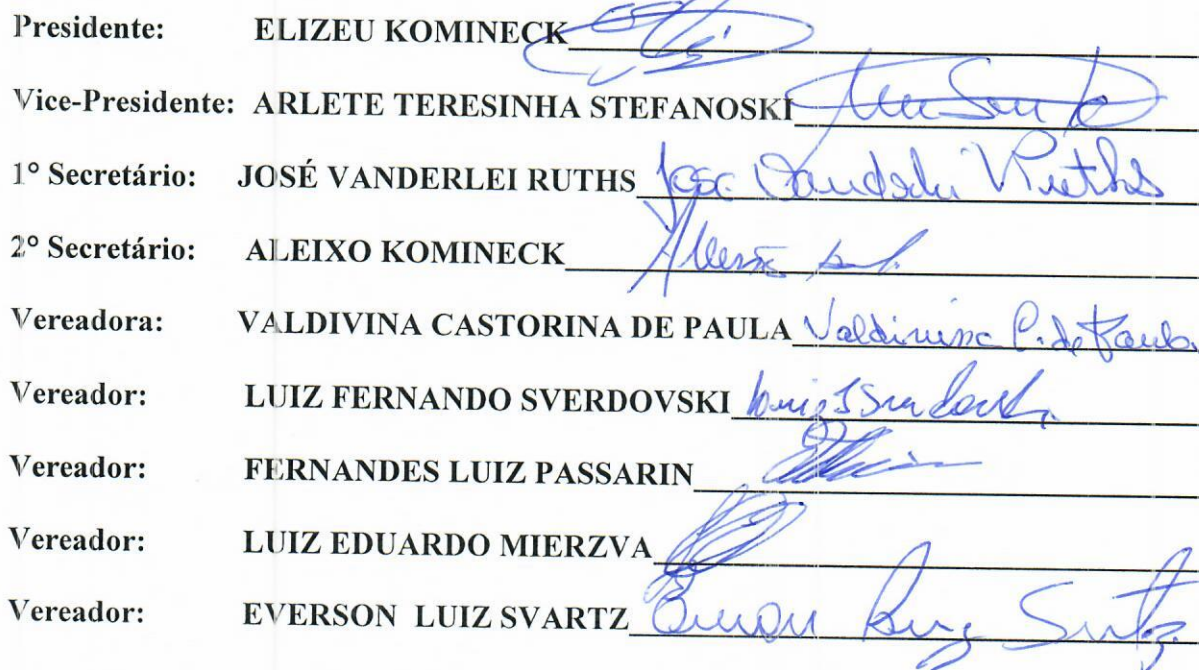 Presidente: ELIZEU KOMINECK
Vice-Presidente: ARLETE TERESINHA STEFANOSKI
1° Secretário: JOSÉ VANDERLEI RUTHS Jose Vanderlei Ruths
2° Secretário: ALEIXO KOMINECK
Vereadora: VALDIVINA CASTORINA DE PAULA Valdivina C. de Paula
Vereador: LUIZ FERNANDO SVERDOVSKI
Vereador: FERNANDES LUIZ PASSARIN
Vereador: LUIZ EDUARDO MIERZVA
Vereador: EVERSON LUIZ SVARTZ